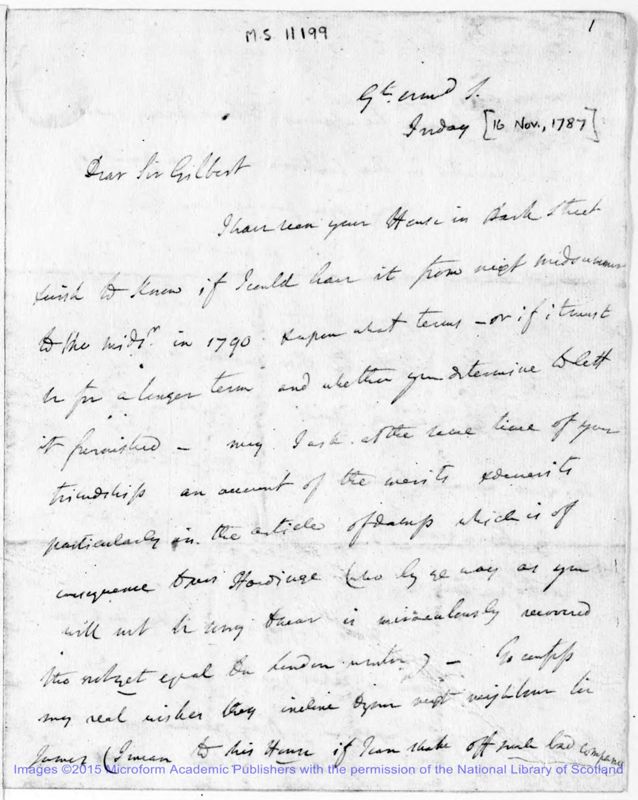 M.S. 11199
1
Gt. Ormd S.
Friday [16 Nov., 1787]
Dear Sir Gilbert
I have seen your House in Park Street
& wish to know if I could have it from next midsummer
to the midsr. in 1790 & upon what terms – or if it must
be for a longer term and whether you determine to lett
it furnished – may I ask at the same time of your
friendship an account of the merits & demerits
particularly in the article of damps which is of
consequence to Mrs Hardinge (who by ye way as you
will not be sorry to hear is miraculously recovered
tho not yet equal to a London winter) – To confess
my real wishes they incline to your next neighbour Sir
James (I mean to his House if I can shake off such bad company
Images ©2015 Microform Academic Publishers with the permission of the National Library of Scotland